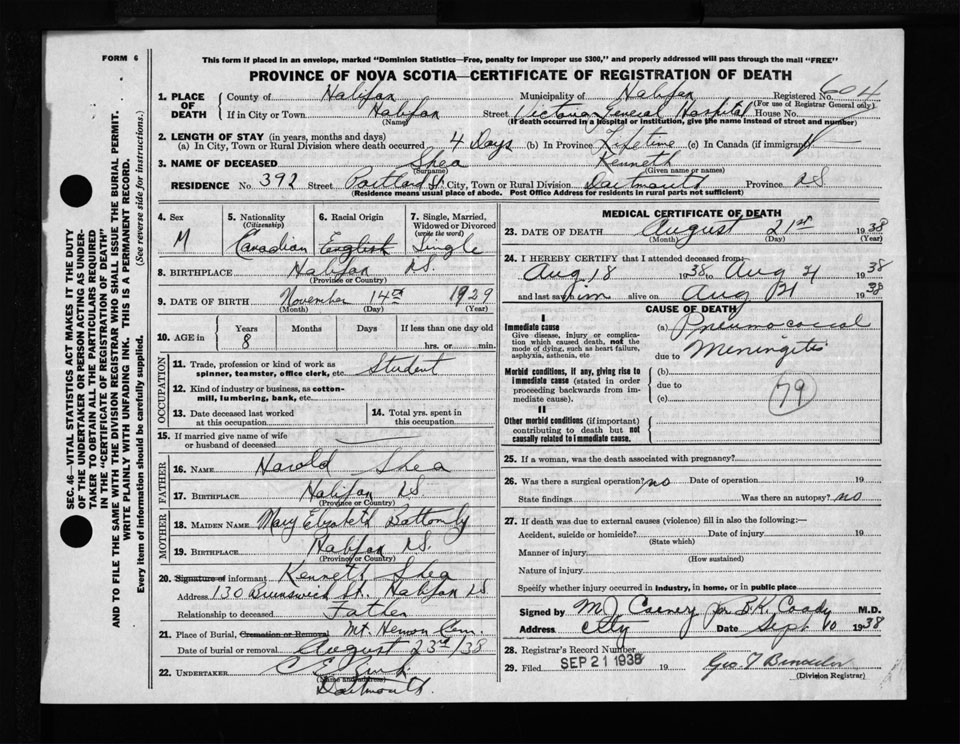 FORM 6
This form if placed in an envelope, marked "Dominion Statistics—Free, penalty for improper use $300," and properly addressed will pass through the mail "FREE"
PROVINCE OF NOVA SCOTIA—CERTIFICATE OF REGISTRATION OF DEATH
1. PLACE OF DEATH
County of Halifax Municipality of Halifax Registered No. 604
(For use of Registrar General only)
If in City or Town Halifax Street Victoria General Hospital House No.
(Name) (If death occurred in a hospital or institution, give the name instead of street and number)
2. LENGTH OF STAY (in years, months and days)
(a) In City, Town or Rural Division where death occurred 4 Days (b) In Province Lifetime (c) In Canada (if immigrant)
3. NAME OF DECEASED Shea Kenneth
(Surname) (Given name or names)
RESIDENCE No. 392 Street Portland St. City, Town or Rural Division Dartmouth Province NS
(Residence means usual place of abode. Post Office Address for residents in rural parts not sufficient)
4. Sex M
5. Nationality (Citizenship) Canadian
6. Racial Origin English
7. Single, Married, Widowed or Divorced (write the word) Single
8. BIRTHPLACE Halifax NS.
9. DATE OF BIRTH November 14th 1929
(Month) (Day) (Year)
10. AGE in Years Months Days If less than one day old
8 hrs. or min.
OCCUPATION
11. Trade, profession or kind of work as spinner, teamster, office clerk, etc. Student
12. Kind of industry or business, as cotton-mill, lumbering, bank, etc.
13. Date deceased last worked at this occupation
14. Total yrs. spent in this occupation
15. If married give name of wife or husband of deceased
FATHER
16. NAME Harold Shea
17. BIRTHPLACE Halifax NS.
(Province or Country)
MOTHER
18. MAIDEN NAME Mary Elizabeth
19. BIRTHPLACE Halifax NS.
(Province or Country)
20. Signature of informant Kenneth Shea
Address 130 Brunswick St. Halifax NS
Relationship to deceased Father
21. Place of Burial, Cremation or Removal Mt. Hermon Cem.
Date of burial or removal August 23rd/38
22. UNDERTAKER C E
(Name and address)
Dartmouth.
MEDICAL CERTIFICATE OF DEATH
23. DATE OF DEATH August 21st 1938
(Month) (Day) (Year)
24. I HEREBY CERTIFY that I attended deceased from:
Aug 18 1938 to Aug 21 1938
and last saw him alive on Aug 21 1938
CAUSE OF DEATH
I
Immediate cause
Give disease, injury or complication which caused death, not the mode of dying, such as heart failure, asphyxia, asthenia, etc
(a) Pneumococcal
due to Meningitis
Morbid conditions, if any, giving rise to immediate cause (stated in order proceeding backwards from immediate cause).
(b)
due to
(c) 79
II
Other morbid conditions (if important) contributing to death but not causally related to immediate cause.
25. If a woman, was the death associated with pregnancy?
26. Was there a surgical operation? no Date of operation 19
State findings Was there an autopsy? no
27. If death was due to external causes (violence) fill in also the following:—
Accident, suicide or homicide? Date of injury 19
(State which)
Manner of injury
(How sustained)
Nature of injury
Specify whether injury occurred in industry, in home, or in public place
Signed by for B.K. Coady M.D.
Address City Date Sept 10 1938
28. Registrar's Record Number
29. Filed SEP 21 1938 19
(Division Registrar)
SEC. 46—VITAL STATISTICS ACT MAKES IT THE DUTY
OF THE UNDERTAKER OR PERSON ACTING AS UNDER-
TAKER TO OBTAIN ALL THE PARTICULARS REQUIRED
IN THE "CERTIFICATE OF REGISTRATION OF DEATH"
AND TO FILE THE SAME WITH THE DIVISION REGISTRAR WHO SHALL ISSUE THE BURIAL PERMIT.
WRITE PLAINLY WITH UNFADING INK. THIS IS A PERMANENT RECORD.
Every item of information should be carefully supplied. (See reverse side for instructions.)